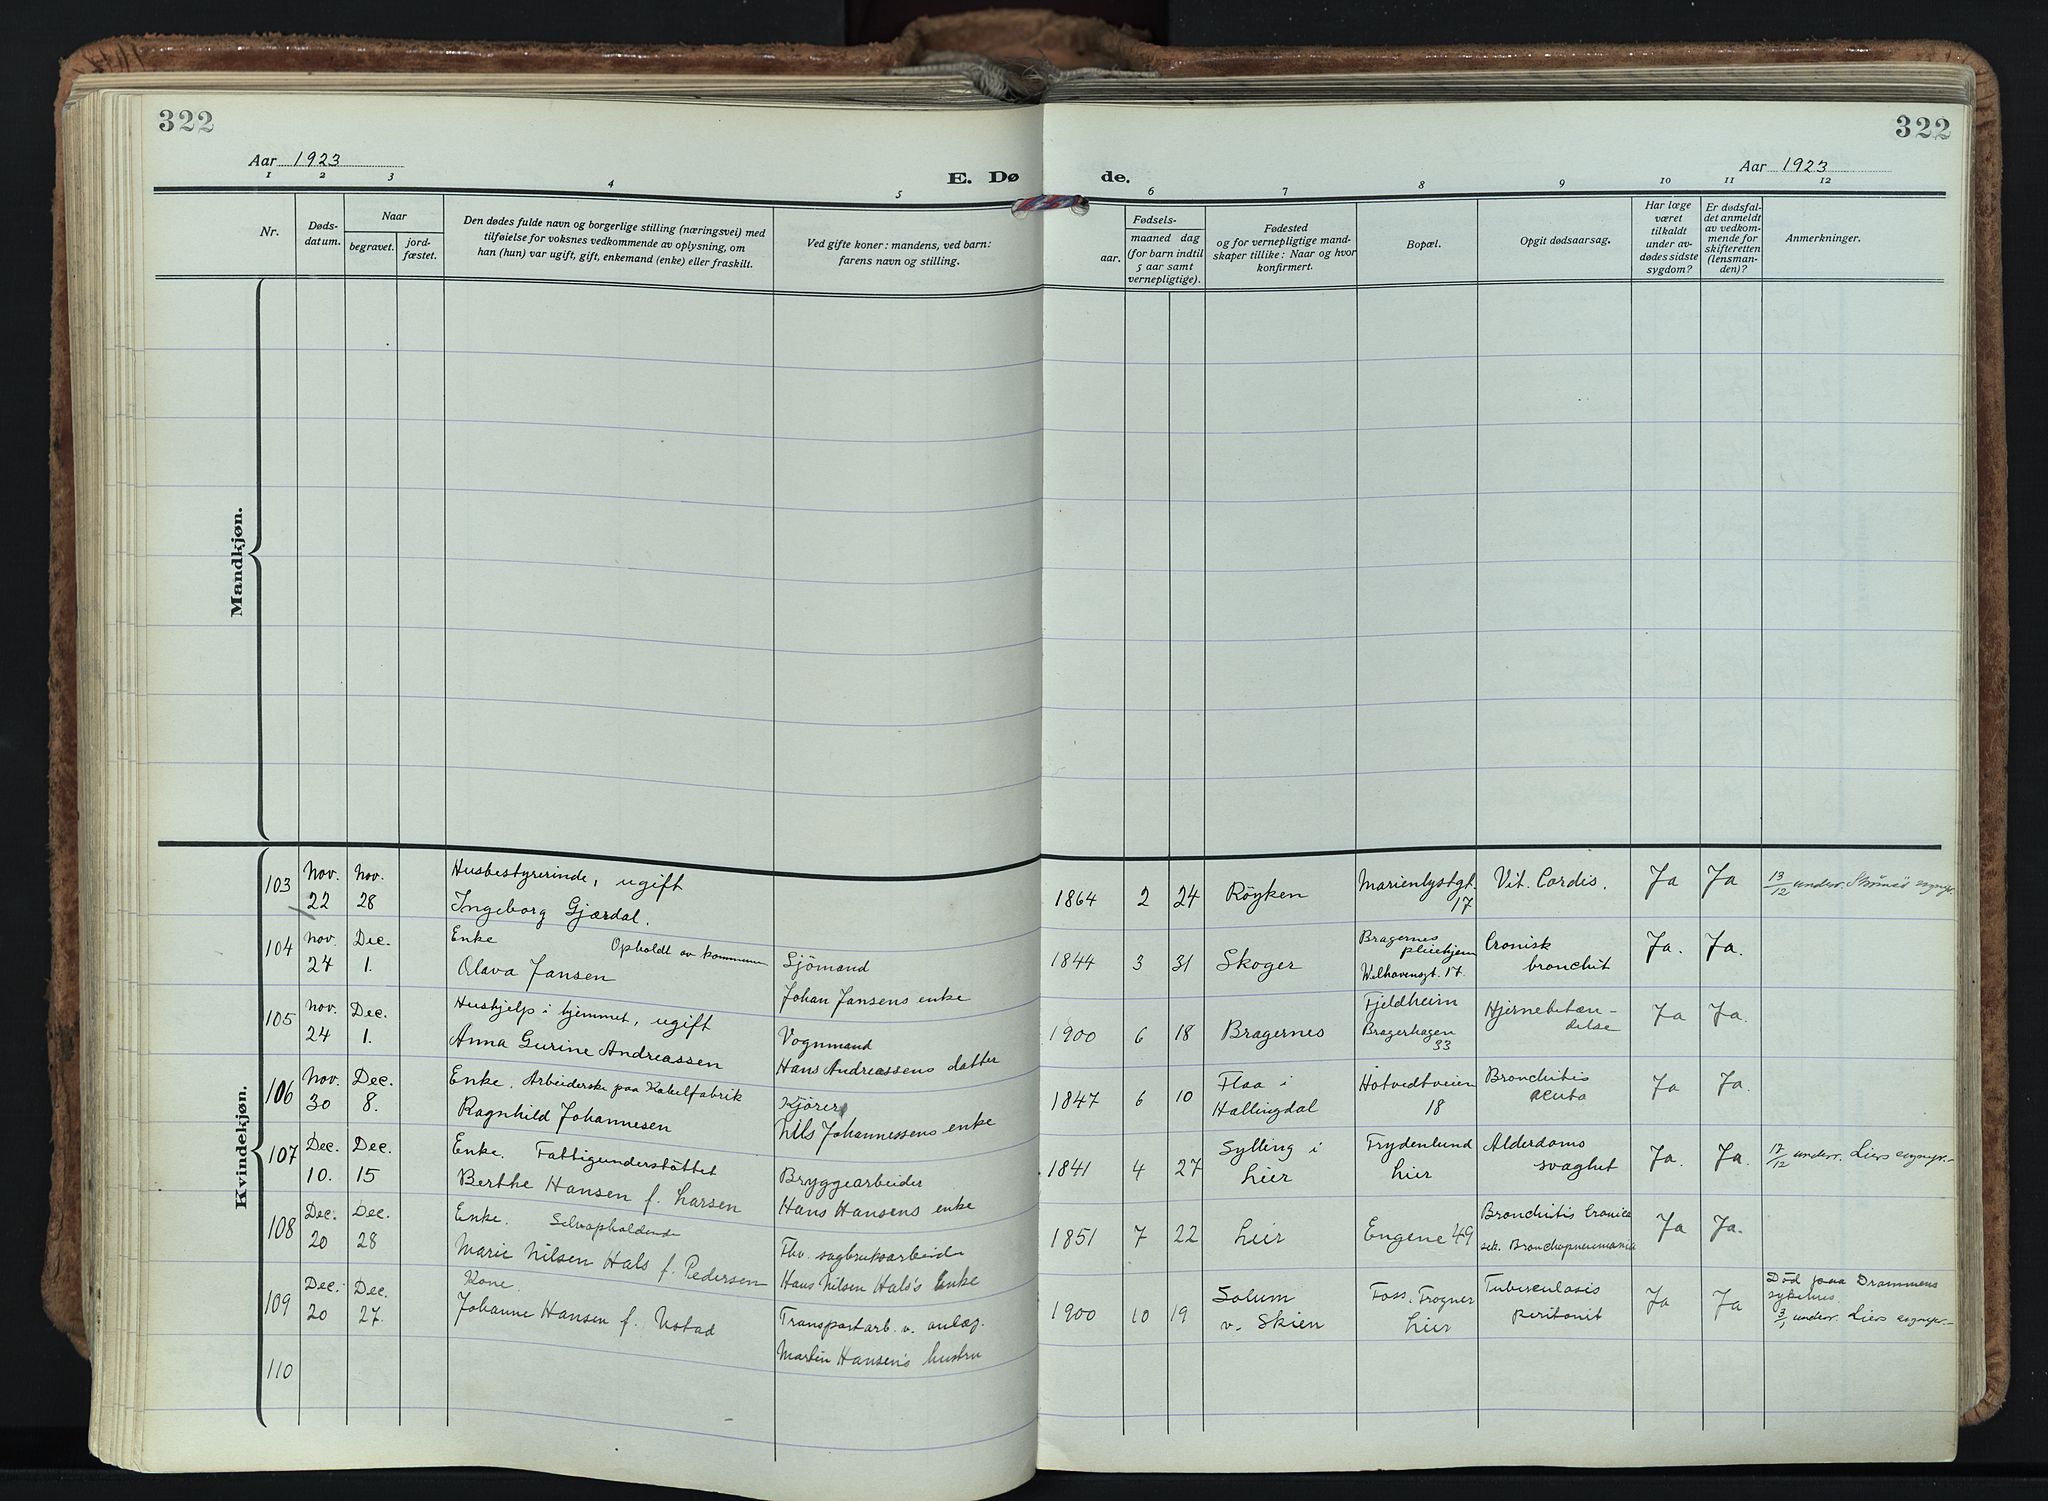 322
322
Aar 1923
Aar 1923
E. Dø
de.
1 2 3 4 5 6 7 8 9 10 11 12
Nr.
Døds-
datum.
Naar
begravet.
jord-
fæstet.
Den dødes fulde navn og borgerlige stilling (næringsvei) med
tilføielse for voksnes vedkommende av oplysning, om
han (hun) var ugift, gift, enkemand (enke) eller fraskilt.
Ved gifte koner: mandens, ved barn:
farens navn og stilling.
Fødsels-
aar.
maaned dag
(for barn indtil
5 aar samt
vernepligtige).
Fødested
og for vernepligtige mand-
skaper tillike: Naar og hvor
konfirmert.
Bopæl.
Opgit dødsaarsag.
Har læge
været
tilkaldt
under av-
dødes sidste
sygdom?
Er dødsfal-
det anmeldt
av vedkom-
mende for
skifteretten
(lensman-
den)?
Anmerkninger.
Mandkjøn.
Kvindekjøn.
103
Nov.
22
Nov.
28
Husbestyrerinde, ugift
Ingeborg Gjærdal.
1864 2 24
Røyken
Marienlystgt.
17
Vit. Cordis.
Ja Ja
13/12 underr. Strømsø sognepr.
104
Nov.
24
Dec.
1.
Enke Opholdt av kommunen
Olava Jansen
Sjömand
Johan Jansens enke
1844 3 31
Skoger
Bragernes
pleiehjem
Welhavensgt. 17.
Cronisk
bronchit
Ja. Ja.
105
Nov.
24
Dec.
1.
Hushjelp i hjemmet, ugift
Anna Gurine Andreassen
Vognmand
Hans Andreassens datter
1900 6 18
Bragernes
Fjeldheim
Bragerhagen
33
Hjernebetæn-
delse
Ja Ja.
106
Nov.
30
Dec.
8.
Enke. Arbeiderske paa Kabelfabrik
Ragnhild Johannesen
Kjörer
Nils Johannessens enke
1847 6 10
Flaa i
Hallingdal
Hotvedtveien
18
Bronchitis
acuta
Ja Ja.
107
Dec.
10.
Dec.
15
Enke. Fattigunderstöttet
Berthe Hansen f. Larsen
Bryggearbeider
Hans Hansens enke
1841 4 27
Sylling i
Lier
Frydenlund
Lier
Alderdoms
svaghet
Ja. Ja.
17/12 underr. Liers sognepr.
108
Dec.
20
Dec.
28
Enke. Selvopholdende
Marie Nilsen Hals f. Pedersen
Fhv. sagbruksarbeider
Hans Nilsen Hals's Enke
1851 7 22
Lier
Engene 49
Bronchitis Cronica
sek. Bronchopneumonia
Ja Ja.
109
Dec.
20
Dec.
27.
Kone
Johanne Hansen f. Nstad
Transportarb. v. anlæg.
Martin Hansen's hustru
1900 10 19
Solum
v. Skien
Foss. Frogner
Lier
Tuberculosis
peritonit
Ja Ja
Död paa Drammens
sykehus
3/1 underr. Liers sognepr.
110